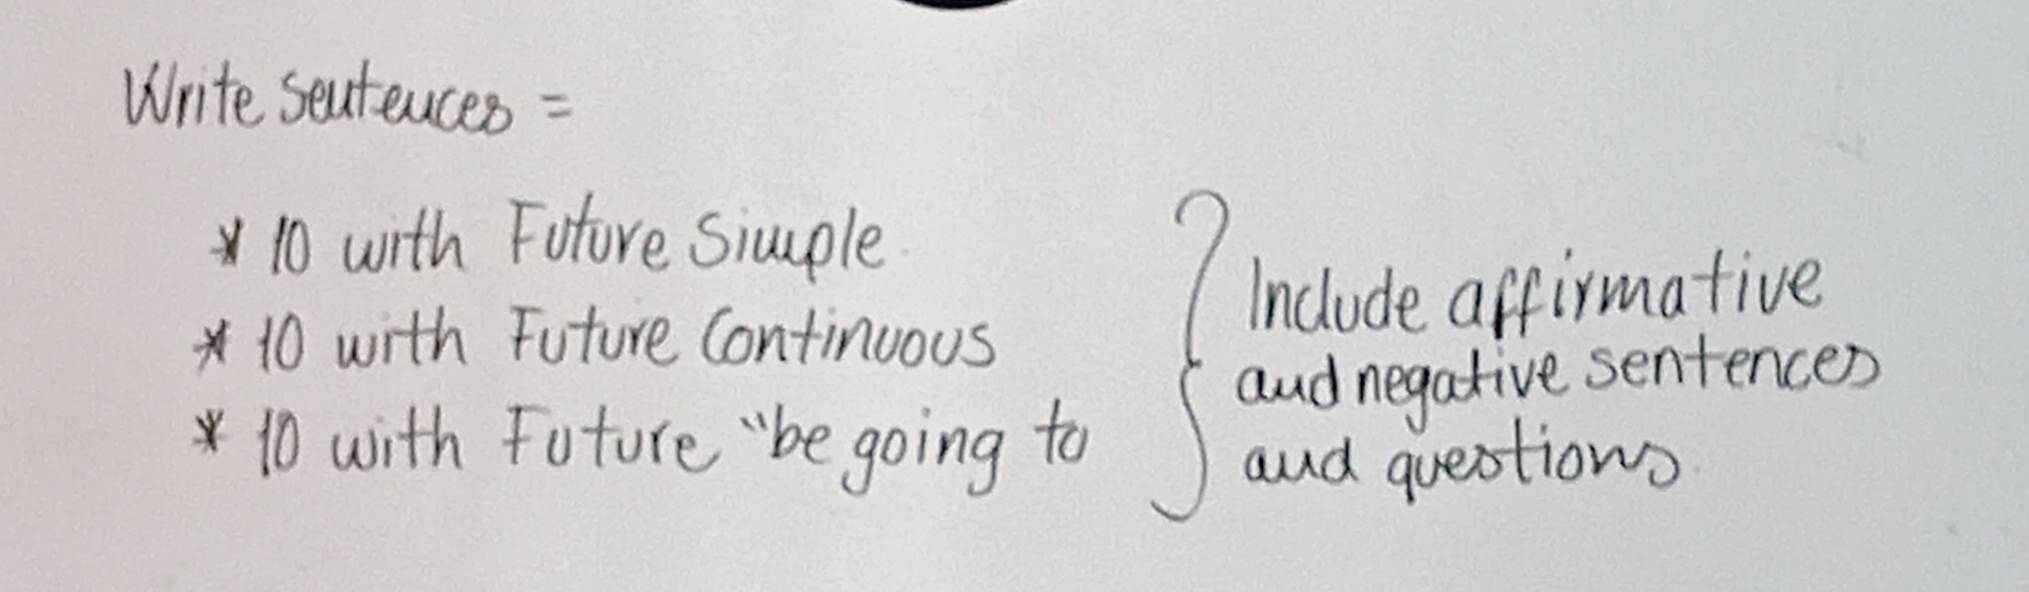 Write sentences =
* 10 with Future Simple
* 10 with Future Continuous
* 10 with Future "be going to
Include affirmative
and negative sentences
and questions.